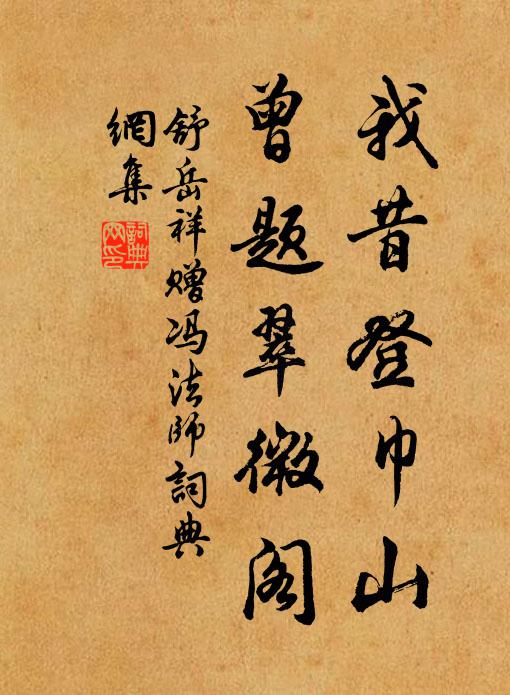 我昔登巾山
曾题翠微阁
舒岳祥赠冯法师詞典
網集
詞典
网印